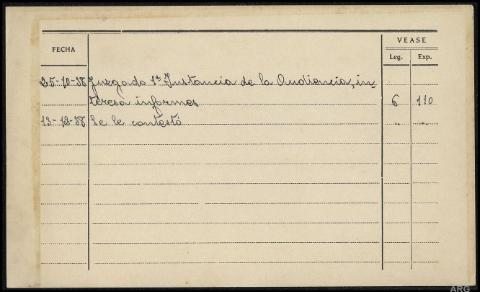 FECHA VEASE
Leg. Exp.
25-10-38 Juzgado 1ª Instancia de la Audiencia, in-
teresa informes 6 110
13-12-38 Se le contestó " "
ARG